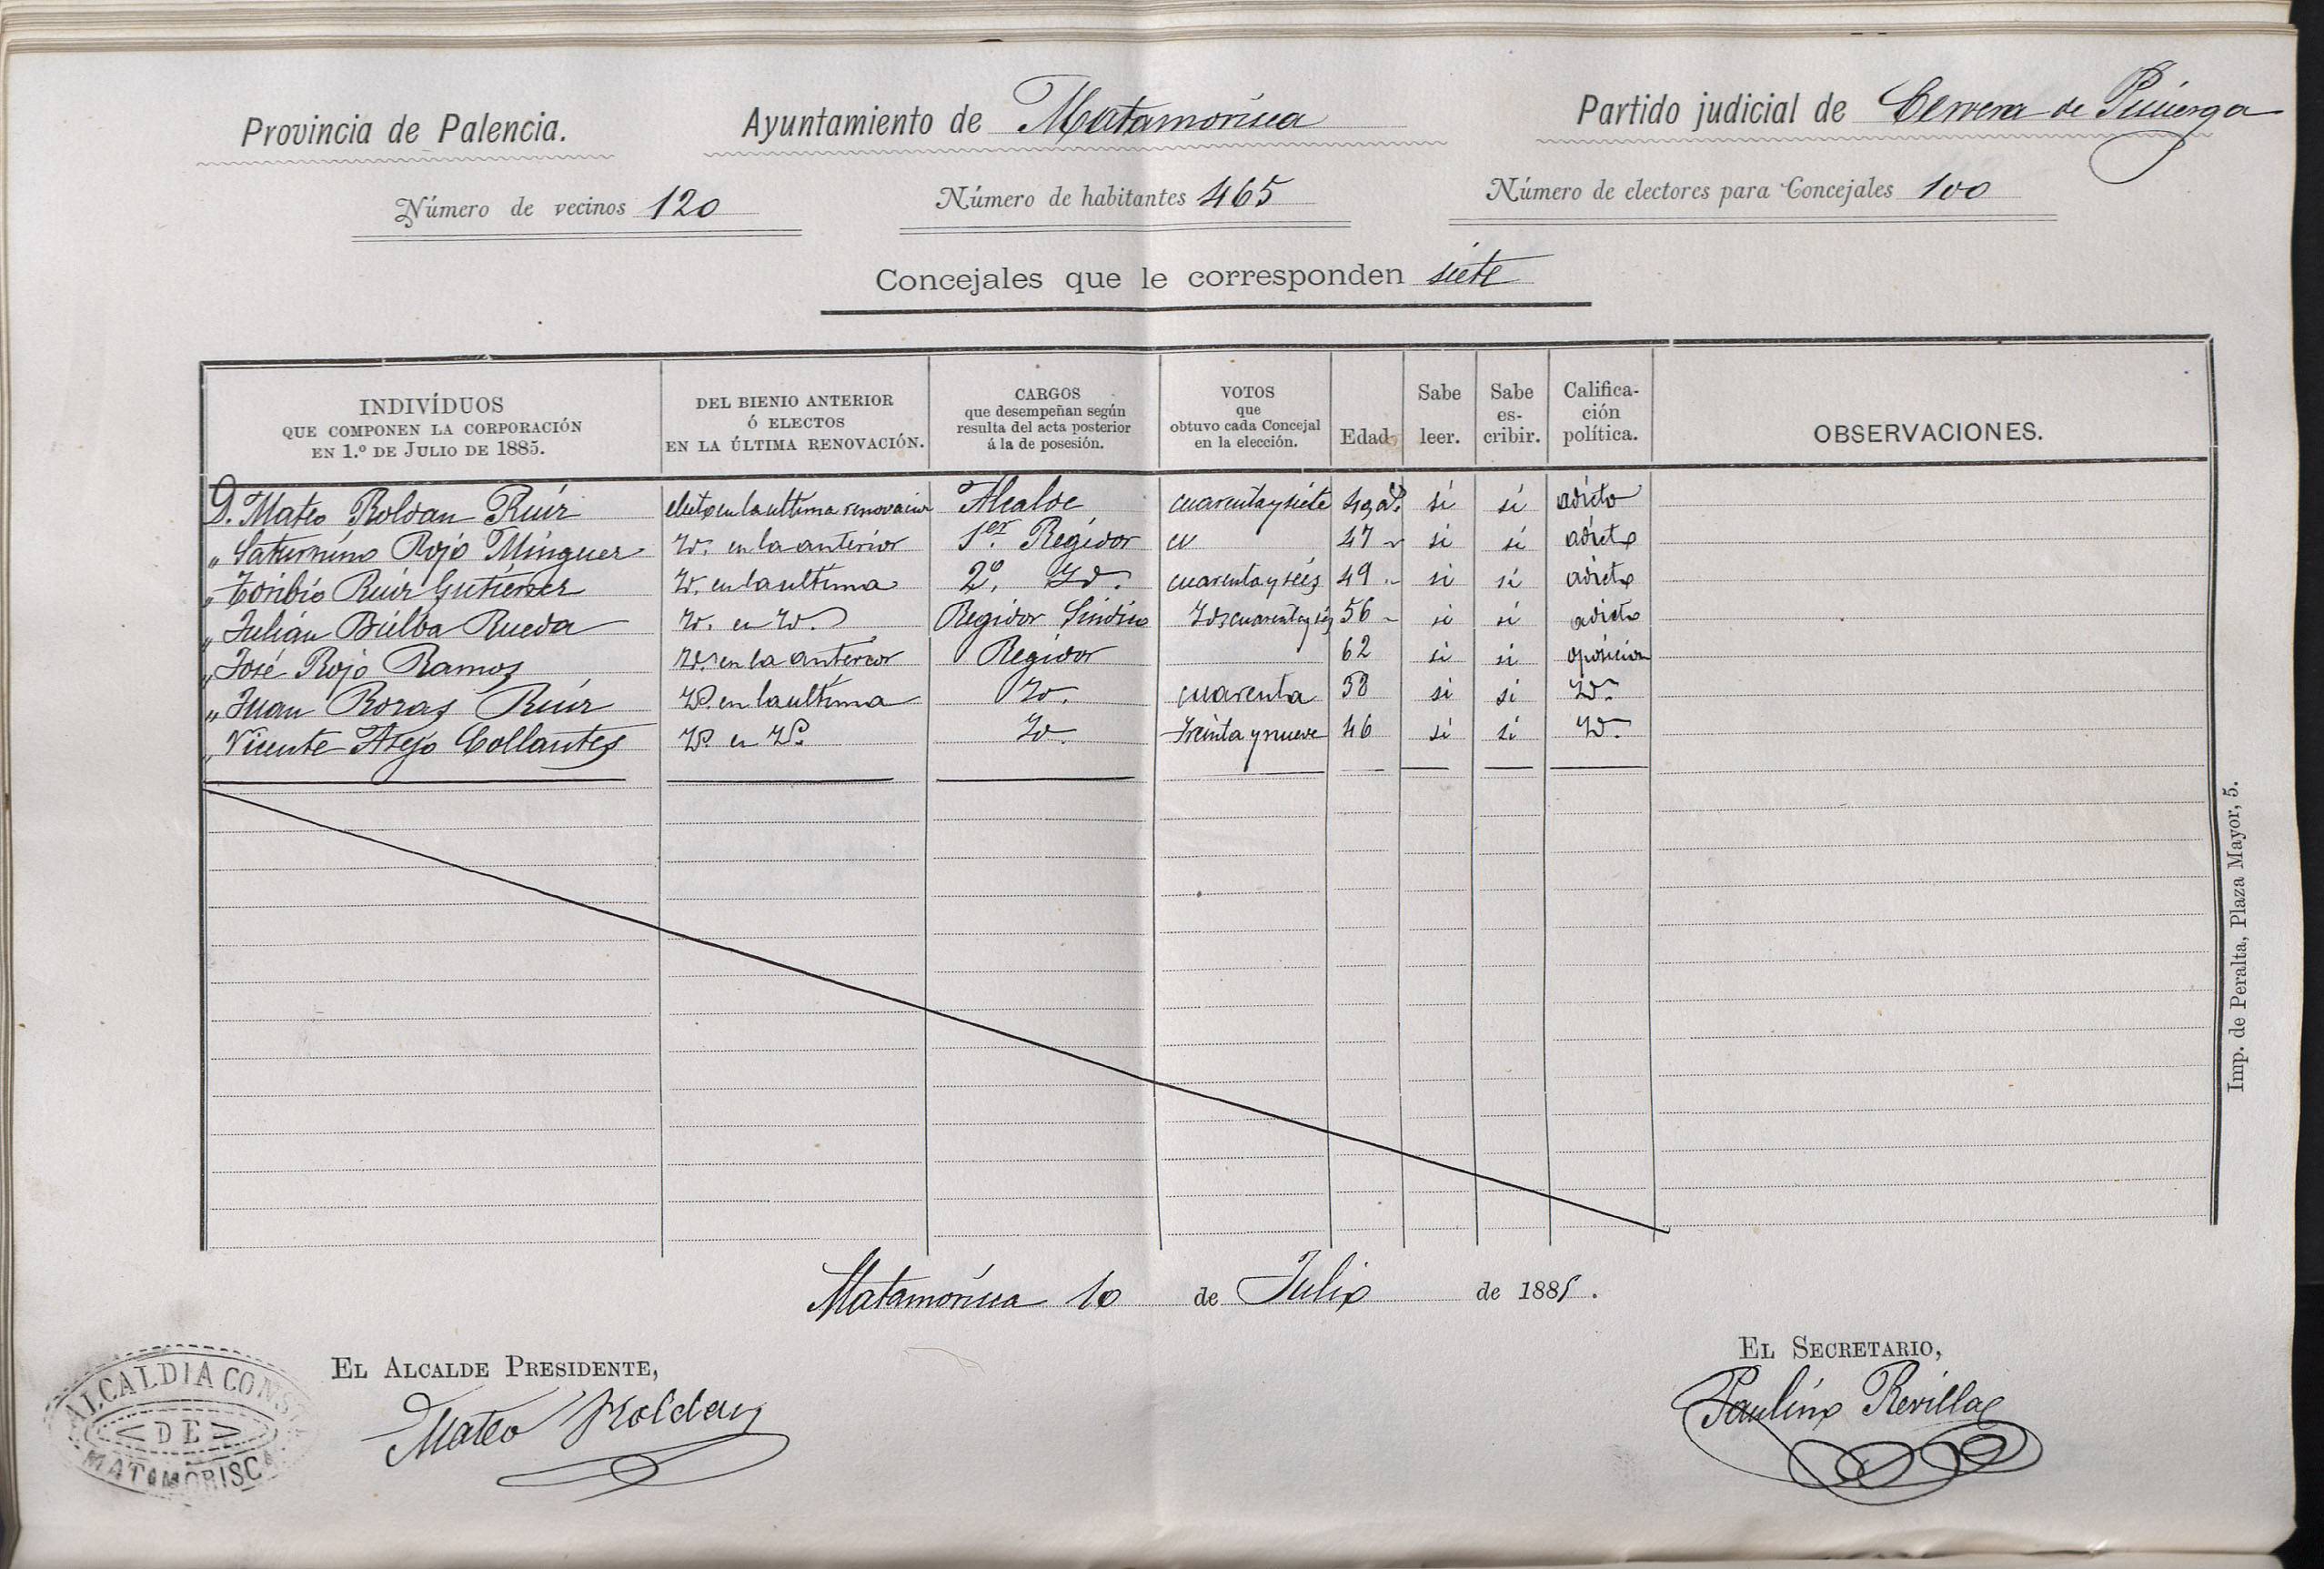 Provincia de Palencia. Ayuntamiento de Matamorisca Partido judicial de Cervera de Pisuerga
Número de vecinos 120 Número de habitantes 465 Número de electores para Concejales 100
Concejales que le corresponden siete
INDIVÍDUOS QUE COMPONEN LA CORPORACIÓN EN 1.º DE JULIO DE 1885. DEL BIENIO ANTERIOR Ó ELECTOS EN LA ÚLTIMA RENOVACIÓN. CARGOS que desempeñan según resulta del acta posterior á la de posesión. VOTOS que obtuvo cada Concejal en la elección. Edad Sabe leer. Sabe escribir. Calificación política. OBSERVACIONES.
D. Mateo Roldan Ruiz electo en la ultima renovacion Alcalde cuarenta y siete 49 a.s si si adicto
" Saturnino Rojo Minguez Id. en la anterior 1er. Regidor 47 " si si adicto
" Toribio Ruiz Gutierrez Id. en la ultima 2º. Id. cuarenta y seis 49 " si si adicto
" Julián Bielba Rueda Id. en Id. Regidor Sindico Id cuarenta y seis 56 " si si adicto
" José Rojo Ramos Id. en la anterior Regidor 62 si si oposicion
" Juan Rozas Ruiz Id. en la ultima Id. cuarenta 38 si si Id.
" Vicente Alejo Collantes Id. en Id. Id. Treinta y nueve 46 si si Id.
Matamorisca 10 de Julio de 1885.
EL ALCALDE PRESIDENTE,
Mateo Roldan
EL SECRETARIO,
Paulino Revilla
ALCALDIA CONST
DE
MATAMORISCA
Imp. de Peralta, Plaza Mayor, 5.